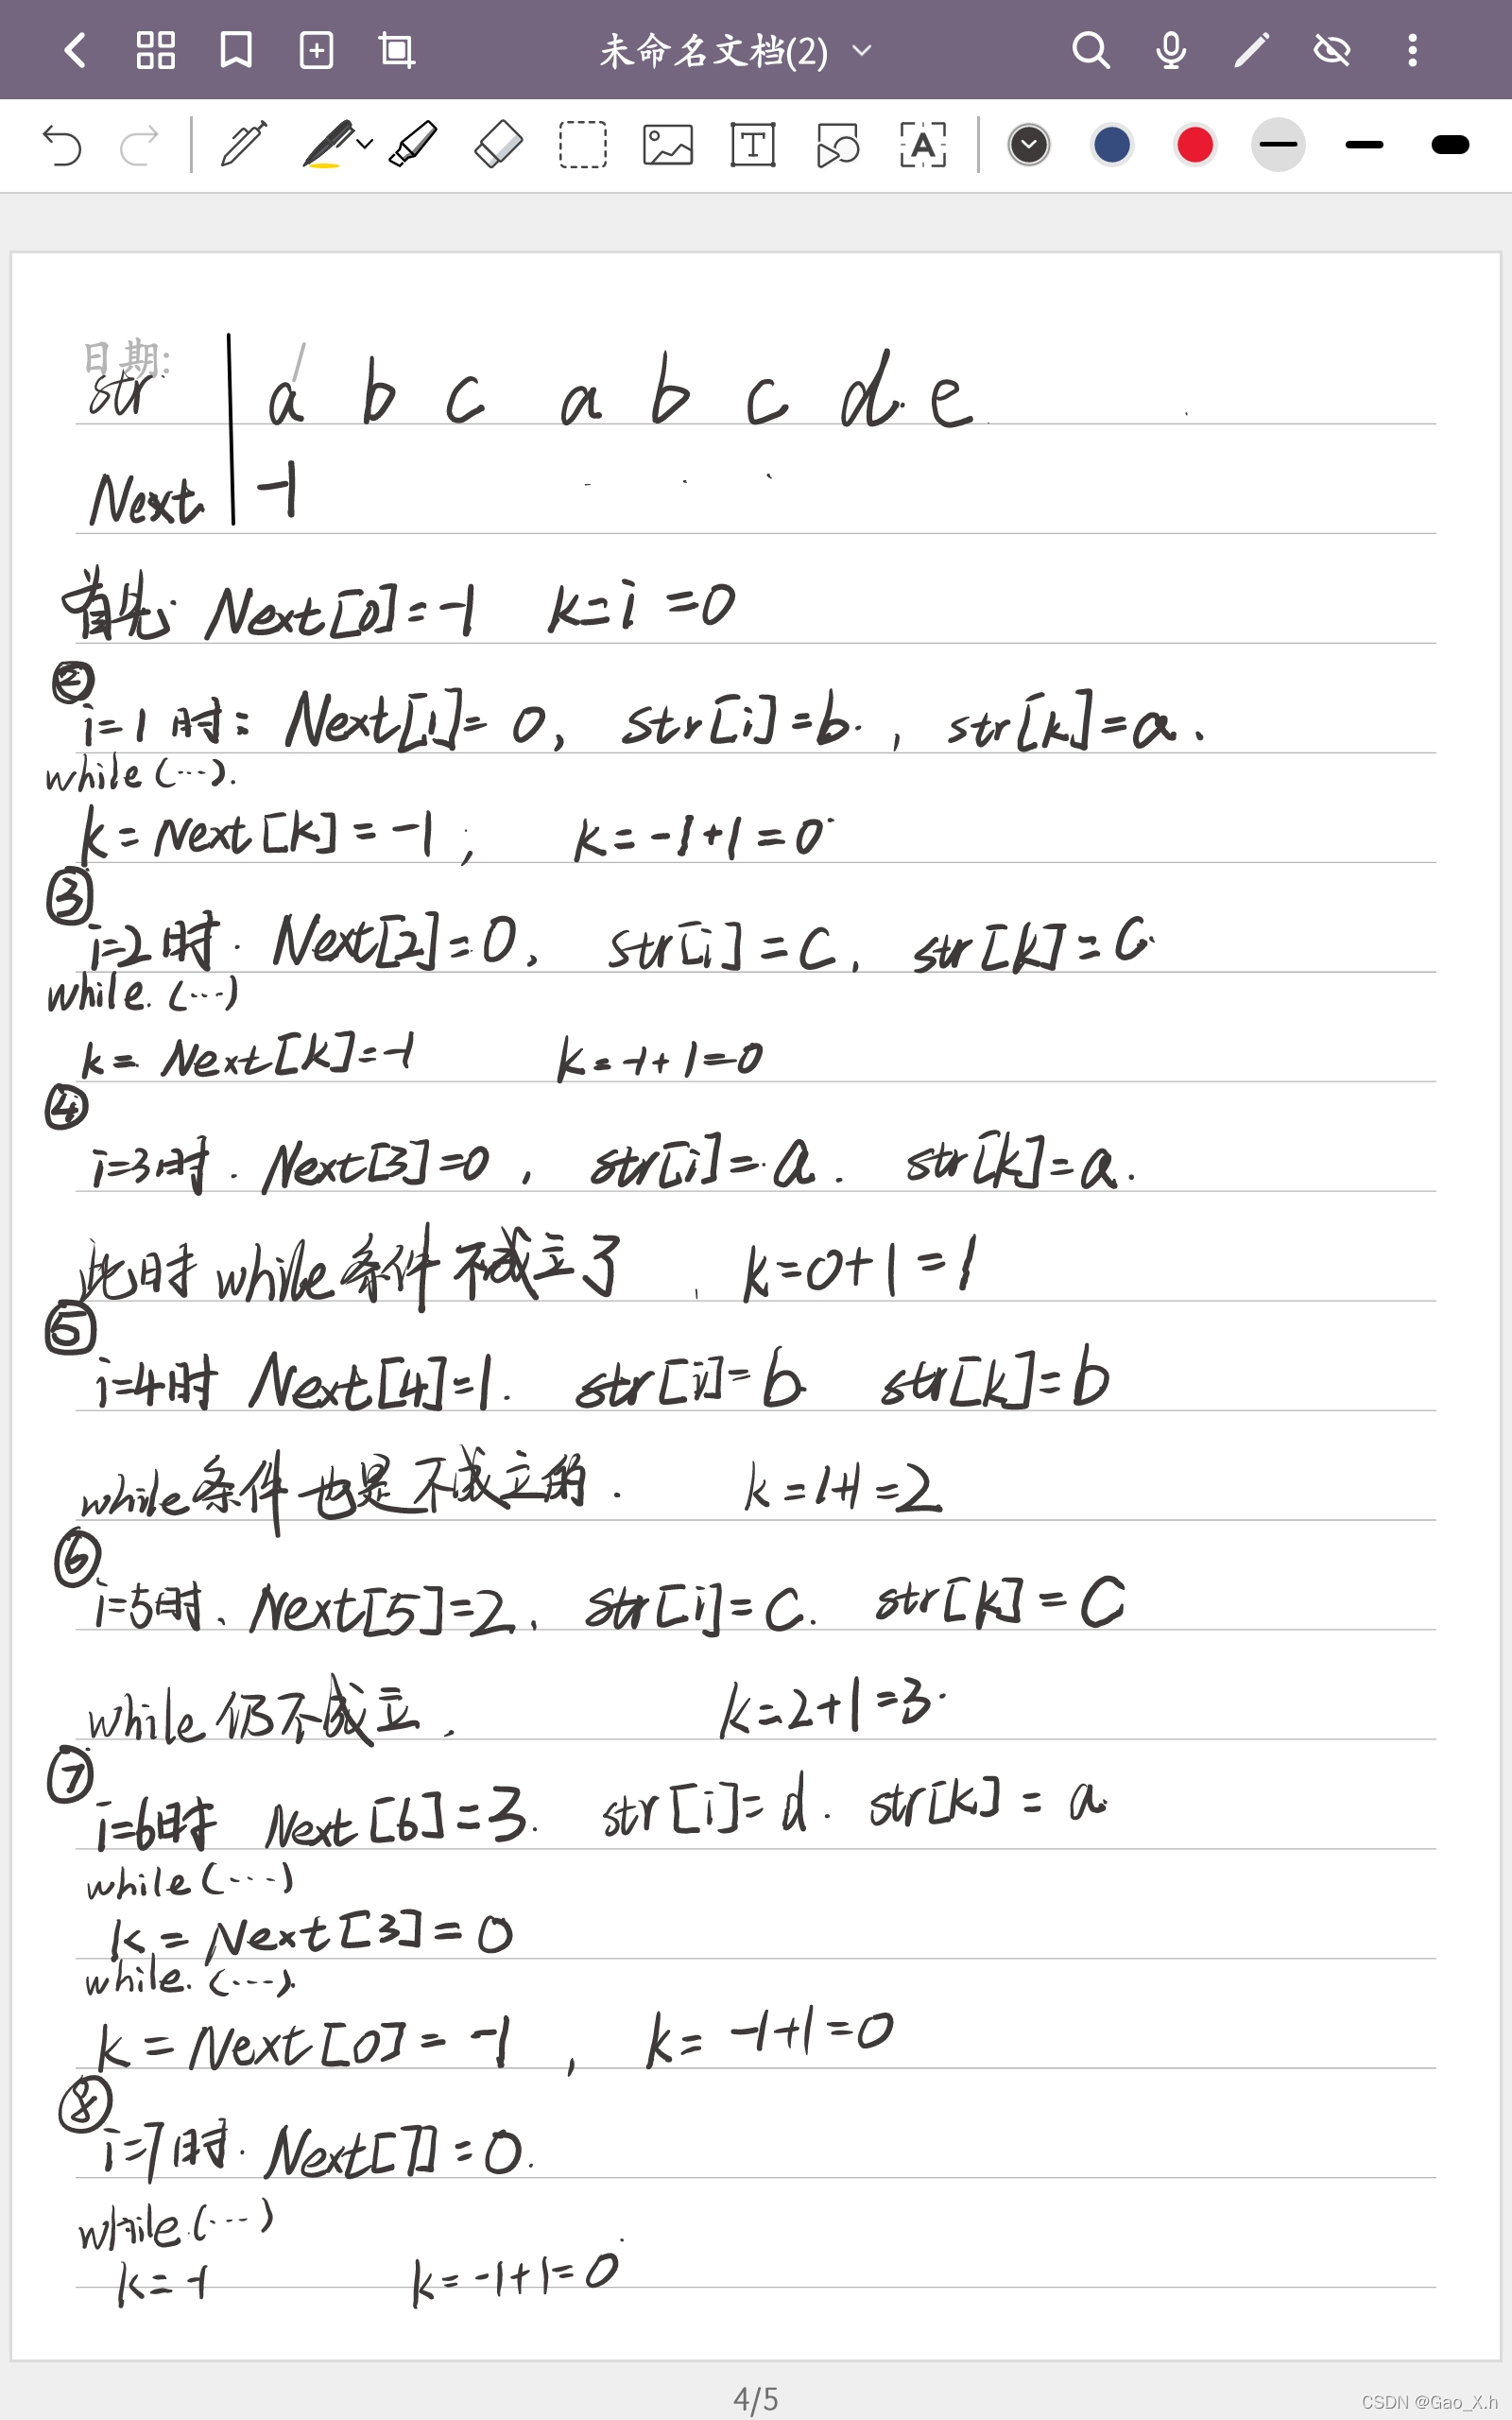 未命名文档(2)
日期:
str a b c a b c d e
Next -1
首先: Next[0]=-1 k=i=0
②
i=1时: Next[1]=0, str[i]=b, str[k]=a.
while(...).
k=Next[k]=-1; k=-1+1=0
③
i=2时. Next[2]=0, str[i]=c, str[k]=c.
while.(...)
k=Next[k]=-1 k=-1+1=0
④
i=3时. Next[3]=0, str[i]=a. str[k]=a.
此时while条件不成立了, k=0+1=1
⑤
i=4时 Next[4]=1. str[i]=b str[k]=b
while条件也是不成立的. k=1+1=2
⑥
i=5时、Next[5]=2, str[i]=c. str[k]=c
while仍不成立. k=2+1=3.
⑦
i=6时 Next[6]=3. str[i]=d. str[k]=a
while(...)
k=Next[3]=0
while.(...).
k=Next[0]=-1, k=-1+1=0
⑧
i=7时. Next[7]=0.
while.(...)
k=-1 k=-1+1=0
4/5
CSDN @Gao_X.h